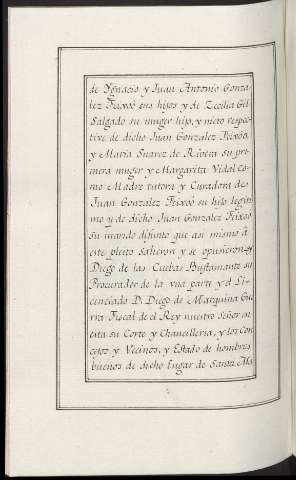 de Ygnacio y Juan Antonio Gonza-
lez Feixoó sus hijos y de Zecilia Gil
Salgado su muger hijo, y nieto respec-
tive de dicho Juan Gonzalez Feixoó,
y Maria Suarez de Rivera su pri-
mera muger y Margarita Vidal co-
mo Madre tutora y Curadora de
Juan Gonzalez Feixoó su hijo legiti
mo y de dicho Juan Gonzalez Feixoó
su marido difunto que asi mismo á
este pleito salieron y se opusieron y
Diego de las Cuebas Bustamante su
Procurador de la vna parte y el Li-
cenciado D. Diego de Marquina Gue
rra Fiscal de el Rey nuestro Señor en
esta su Corte y Chancilleria, y los Con
cejos y Vecinos, y Estado de hombres
buenos de dicho Lugar de Santa Ma